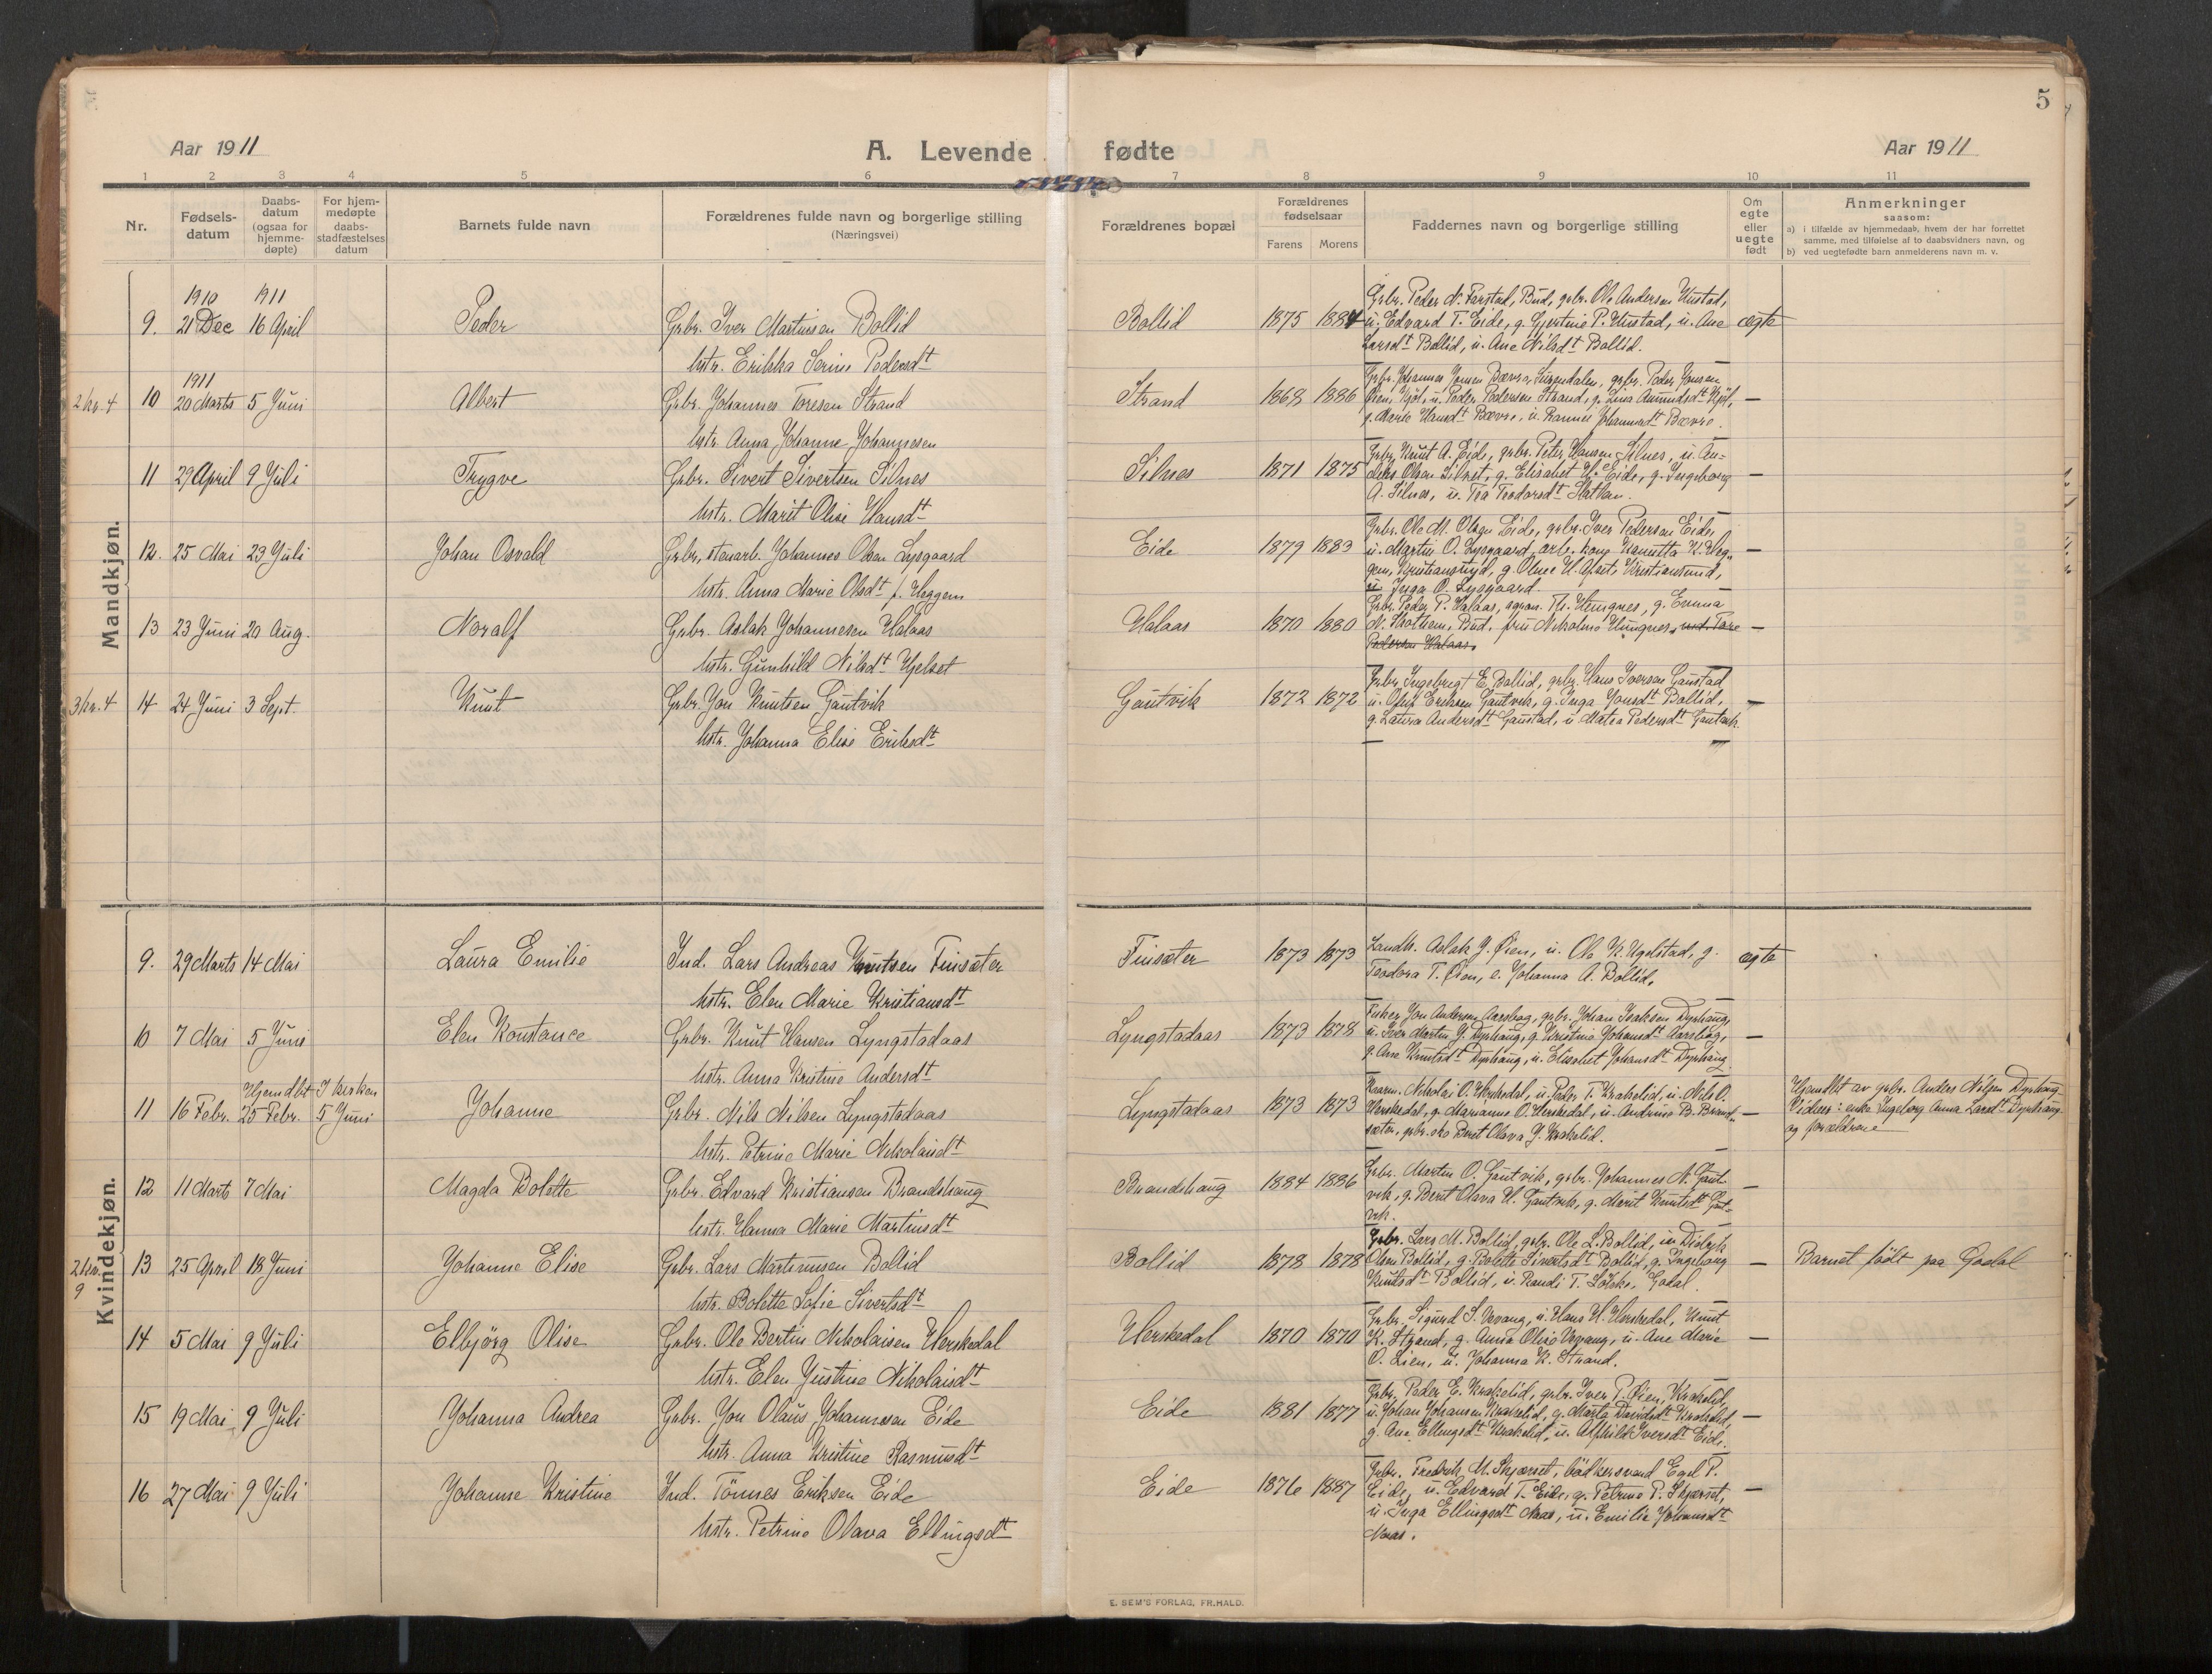 5
Aar 1911
A. Levende fødte
Aar 1911
1 2 3 4 5 6 7 8 9 10 11
Nr.
Fødsels-
datum
Daabs-
datum
(ogsaa for
hjemme-
døpte)
For hjem-
medøpte
daabs-
stadfæstelses
datum
Barnets fulde navn
Forældrenes fulde navn og borgerlige stilling
(Næringsvei)
Forældrenes bopæl
Forældrenes
fødselsaar
Farens Morens
Faddernes navn og borgerlige stilling
Om
egte
eller
uegte
født
Anmerkninger
saasom:
a) i tilfælde av hjemmedaab, hvem der har forrettet
samme, med tilføielse af to daabsvidners navn, og
b) ved uegtefødte barn anmelderens navn m. v.
Mandkjøn.
1910 1911
9. 21 Dec 16 April Peder Grbr. Iver Martinsen Bollid
hstr. Erikka Serine Pedersdt
Bollid 1875 1884
Grbr. Peder N. Farstad, Bud, grbr. Ole Andersen Hustad,
u. Edvard T. Eide, g. Gjertine P. Hustad, u. Ane
Larsdt Bollid, u. Ane Nilsdt Bollid.
egte
1911
2 kv. 4 10 20 Marts 5 Juni Albert Grbr. Johannes Toresen Strand
hstr. Anna Johanne Johannesen
Strand 1868 1886
Grbr. Johannes Jonsen Bævre, Surendalen, grbr. Peder Jonsen
Øien, Kjöl, u. Peder Pedersen Strand, g. Lina Amundsdt Kjöl,
g. Marie Hansdt Bævre, u. Rannei Johannesdt Bævre.
—
11 29 April 9 Juli Trygve Grbr. Sivert Sivertsen Silnes
hstr. Marit Olise Hansdt
Silnes 1871 1875
Grbr. Knut A. Eide, grbr. Peter Hansen Silnes, u. An-
ders Olsen Silset, g. Elisabet H. Eide, g. Ingeborg
A. Silnes, u. Tea Teodorsdt Slatlan.
—
12. 25 Mai 23 Juli Johan Osvald Grbr, stenarb. Johannes Olsen Lysgaard
hstr. Anna Marie Olsdt f. Heggem
Eide 1879 1883
Grbr. Ole M. Olsen Eide, grbr. Iver Pedersen Eide,
u. Martin O. Lysgaard, arb. kone Kanutta K. Heg-
gem, Kristianssund, g. Oline H. Kristianssund,
u. Inga O. Lysgaard.
—
13 23 Juni 20 Aug. Noralf Grbr. Aslak Johannesen Halaas
hstr. Gunhild Nilsdt Hjelset
Halaas 1870 1880
Grbr. Peder P. Halaas, agron. Th. Hemgnes, g. Emma
N. Skotheim, Bud, frü Nikoline Hungnes, und. Tore
Pedersen Halaas.
—
3 kv. 4 14 24 Juni 3 Sept. Knut Grbr. Jon Knutsen Gautvik
hstr. Johanna Elise Eriksdt
Gautvik 1872 1872
Grbr. Ingebrigt E. Bollid, grbr. Hans Iversen Gaustad
u. Olaf Eriksen Gautvik, g. Inga Jonsdt Bollid,
g. Laura Andersdt Gaustad, u. Matea Pedersdt Gautvik.
—
Kvindekjøn.
9. 29 Marts 14 Mai Laura Emilie Ind. Lars Andreas Knutsen Finsæter
hstr. Elen Marie Kristiansdt
Finsæter 1873 1873
Landh. Aslak J. Øien, u. Ole K. Ugelstad, g.
Teodora T. Øien, e. Johanna A. Bollid.
egte
10 7 Mai 5 Juni Elen Konstance Grbr. Knut Hansen Lyngstadaas
hstr. Anna Kristine Andersdt
Lyngstadaas 1873 1878
Fisker Jon Andersen Aarsbog, grbr. Johan Isaksen Dyrhaug,
u. Iver Martin J. Dyrhaug, g. Kristine Johansdt Aarsbog,
g. Ane Knutsdt Dyrhaug, u. Elisabet Johansdt Dyrhaug
—
Hjemdbt I kirken
11 16 Febr. 25 Febr. 5 Juni Johanne Grbr. Nils Nilsen Lyngstadaas
hstr. Petrine Marie Nikolaisdt
Lyngstadaas 1873 1873
Nikolai O. Herskedal, u. Peder T. Krakelid, u. Nils O.
Herskedal, g. Marianne O. Herskedal, u. Andrine B. Brand-
sæter, grbr. sko Berit Olava J. Krakelid.
—
Hjemdbt av grbr. Anders Nilsen Dyrhaug
Vidner: enke Ingeborg Anna Larsdt Dyrhaug
og forældrene
12 11 Marts 7 Mai Magda Bolette Grbr. Edvard Kristiansen Brandshaug
hstr. Hanna Marie Martinsdt
Brandshaug 1884 1886
Grbr. Martin O. Gautvik, grbr. Johannes N. Gaut-
vik, g. Berit Olava H. Gautvik, g. Marit Knutsdt Gaut-
vik.
—
2 kv. 9 13 25 April 18 Juni Johanne Elise Grbr. Lars Martinusen Bollid
hstr. Bolette Sofie Sivertsdt
Bollid 1878 1878
Grbr. Lars M. Bollid, grbr. Ole L. Bollid, u. Didrik
Olsen Bollid, g. Bolette Sivertsdt Bollid, g. Ingeborg
Knutsdt Bollid, u. Randi T. Solske, Gadal.
—
Barnet födt paa Gadal
14 5 Mai 9 Juli Elbjörg Olise Grbr. Ole Bertin Nikolaisen Herskedal
hstr. Elen Justine Nikolaisdt
Herskedal 1870 1870
Grbr. Sigurd S. Vevang, u. Hans H. Herskedal, Knut
K. Strand, g. Anna Olise Vevang, u. Ane Marie
O. Lien, u. Johanna K. Strand.
—
15 19 Mai 9 Juli Johanna Andrea Grbr. Jon Olaus Johannesen Eide
hstr. Anna Kristine Rasmusdt
Eide 1881 1877
Grbr. Peder E. Krakelid, grbr. Iver P. Øien, Krakelid,
u. Johan Johansen Krakelid, g. Marta Davidsdt Krakelid,
g. Ane Ellingsdt Krakelid, u. Alfhild Iversdt Eide.
—
16 27 Mai 9 Juli Johanne Kristine Ind. Tönnes Eriksen Eide
hstr. Petrine Olava Ellingsdt
Eide 1876 1887
Grbr. Fredrik M. Skjærset, bödkersvend Egil P.
Eide, u. Edvard T. Eide, g. Petrine P. Skjærset,
u. Inga Ellingsdt Naas, u. Emilie Johansdt
Naas.
—
E. SEM'S FORLAG, FR.HALD.